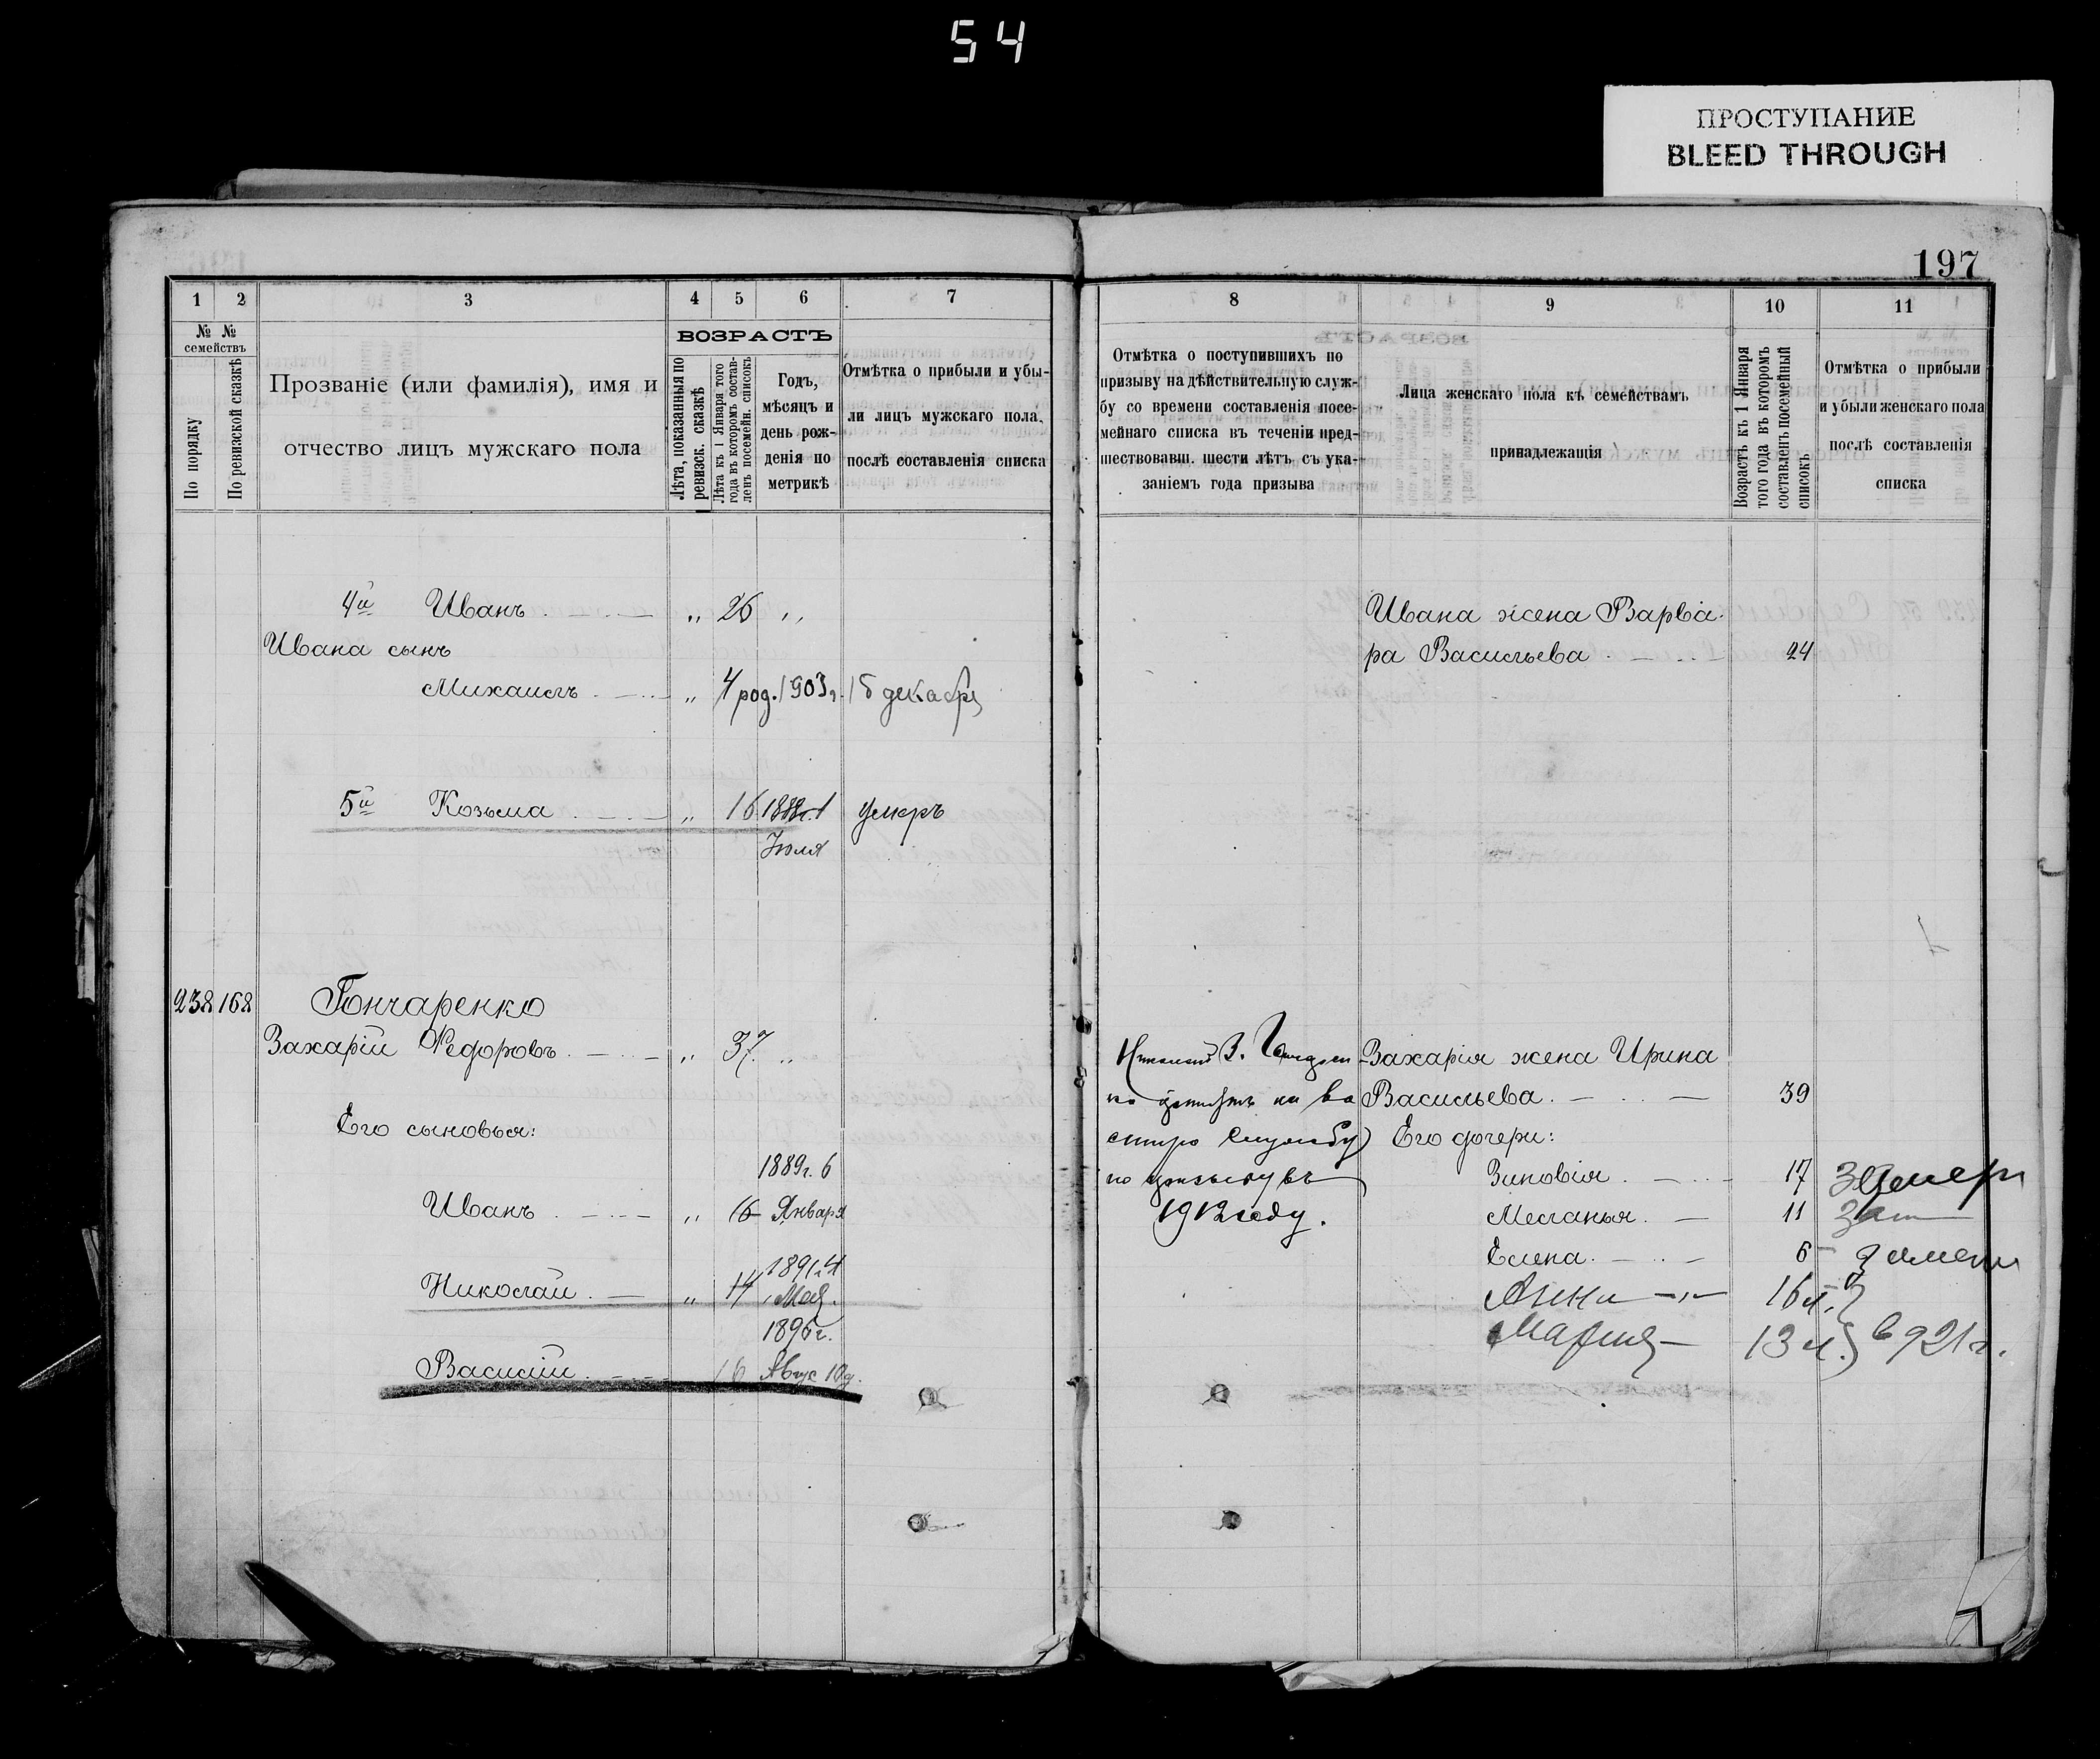 54
ПРОСТУПАНИЕ
BLEED THROUGH
197
1 2 3 4 5 6 7
№ № семействъ
По порядку
По ревизской сказкѣ
Прозваніе (или фамилія), имя и
отчество лицъ мужскаго пола
ВОЗРАСТЪ
Лѣта, показанныя по
ревизск. сказкѣ
Лѣта къ 1 Января того
года въ которомъ состав-
ленъ посемейн. списокъ
Годъ,
мѣсяцъ и
день рож-
денія по
метрикѣ
Отмѣтка о прибыли и убы-
ли лицъ мужскаго пола,
послѣ составленія списка
8 9 10 11
Отмѣтка о поступившихъ по
призыву на дѣйствительную служ-
бу со времени составленія посе-
мейнаго списка въ теченіи пред-
шествовавш. шести лѣтъ съ ука-
заніемъ года призыва
Лица женскаго пола къ семействамъ
принадлежащія
Возрастъ къ 1 Января
того года въ которомъ
составленъ посемейный
списокъ
Отмѣтка о прибыли
и убыли женскаго пола
послѣ составленія
списка
4й Иванъ „ 26 „
Ивана сынъ
Михаилъ „ 4 род. 1903г. 15 декабря
5й Козьма „ 16 1888г. 1 умеръ
Іюля
Ивана жена Варва-
ра Васильева 24
238 168 Гончаренко
Захарій Ѳедоровъ „ 37 „
Его сыновья:
1889г. 6
Иванъ „ 16 Января
1891г. 4
Николай „ 14 Мая.
1896г.
Василій 16 Авгус 10д.
Николай З. Гончарен-
ко
службу
по призыву въ
1912 году.
Захарія жена Ирина
Васильева. 39
Его дочери:
Зиновія 17
Меланья. 11
Елена. 6
Анна 16 л.
Мария 13 л. в 921г.